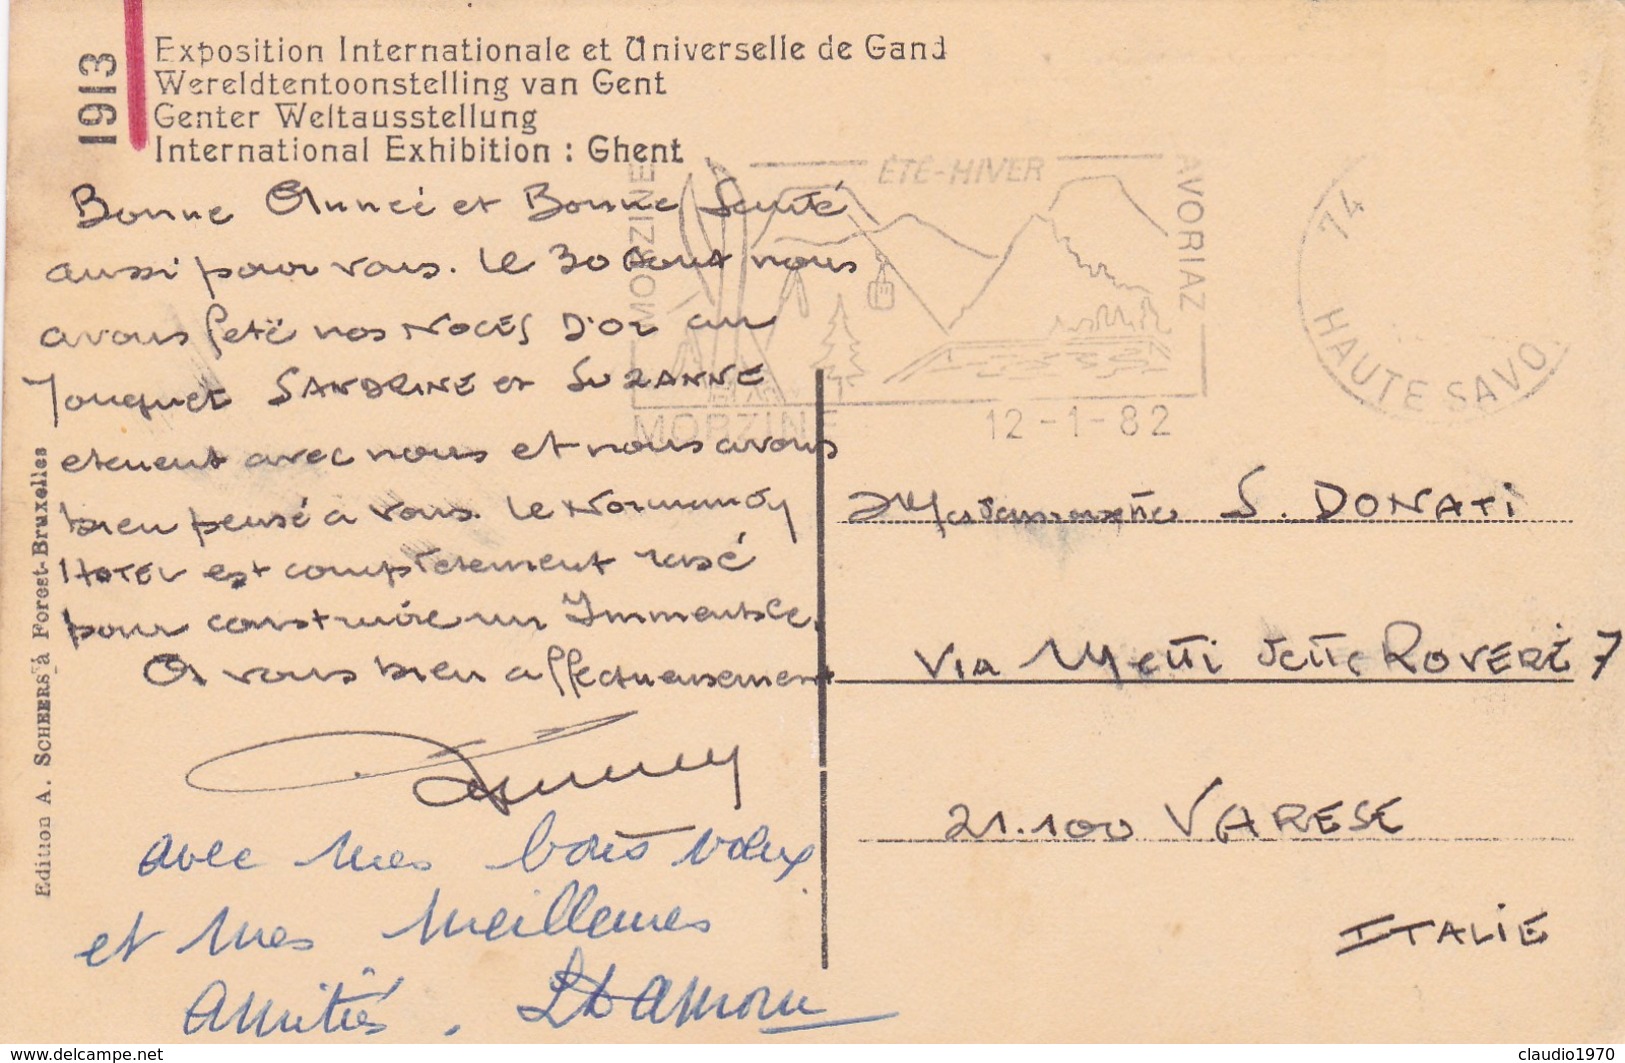 1913
Exposition Internationale et Universelle de Gand
Wereldtentoonstelling van Gent
Genter Weltausstellung
International Exhibition : Ghent
Bonne Année et Bonne Santé
aussi pour vous. Le 30 Aout nous
avons feté nos NOCES D'OR au
Touquet SANDRINE et SUZANNE
etaient avec nous et nous avons
bien pensé a vous. Le Normandy
HOTEL est completement rasé
pour construire un Immeuble.
A vous bien affectueusement
avec mes bons vœux
et mes meilleures
amitiés.
Edition A. SCHEERS à Forest-Bruxelles
MORZINE
ÉTÉ-HIVER
AVORIAZ
MORZINE
12-1-82
74
HAUTE SAVO.
S. DONATI
VIA Metti delle ROVERE 7
21.100 VARESE
ITALIE
www.delcampe.net
claudio1970